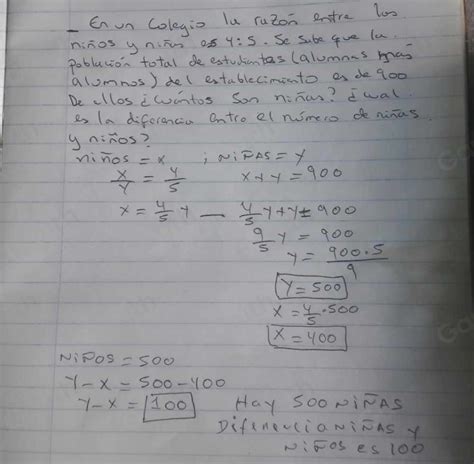 - En un colegio la razón entre los
niños y niñas es 4:5. Se sabe que la
población total de estudiantes (alumnas más
alumnos) del establecimiento es de 900
De ellos ¿cuántos son niñas? ¿cual
es la diferencia entre el número de niñas
y niños?
niños = x ; NIÑAS = Y
x/y = 4/5    x+y = 900
x = 4/5 Y — 4/5 Y+Y = 900
9/5 Y = 900
Y = 900·5/9
Y = 500
x = 4/5 · 500
X = 400
NIÑOS = 500
Y - X = 500 - 400
Y - X = 100
Hay 500 NIÑAS
Diferencia NIÑAS Y
NIÑOS es 100